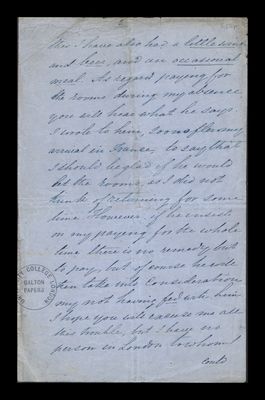 this I have also had a little wine
and beer, and an occasional
meal. As regards paying for
the rooms during my absence
you will hear what he says.
I wrote to him, soon after my
arrival in France, to say that
I should be glad if he would
let the rooms, as I did not
think of returning for some
time. However, if he insists
on my paying for the whole
time there is no remedy but
to pay, but of course he will
then take into consideration
my not having fed with him.
I hope you will excuse me all
this trouble, but I have no
person in London to whom I
Contd
UNIVERSITY COLLEGE LONDON
GALTON
PAPERS